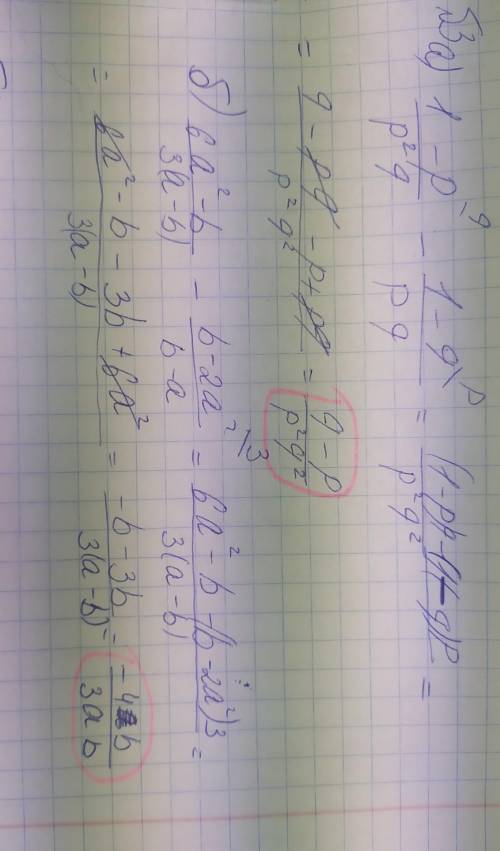 №3 а) (1 - p^\q)/(p²q) - (1 - q^\p)/(pq) = ((1-p)q-(1-q)p)/(p²q²) =
= (q - pq - p + pq)/(p²q²) = (q - p)/(p²q²)
б) (6a² - b)/(3(a - b)) - (b - 2a²^\3)/(b - a) = (6a² - b - (b - 2a²)3)/(3(a - b)) =
= (6a² - b - 3b + 6a²)/(3(a - b)) = (-b - 3b)/(3(a - b)) = (-4b)/(3ab)